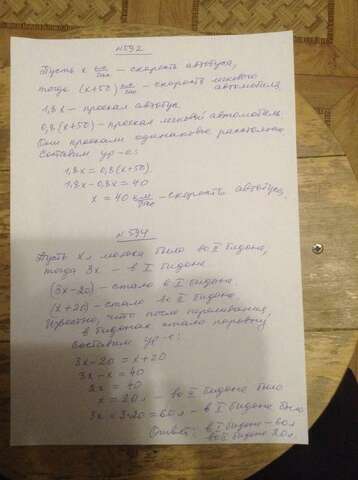 №592
Пусть х км/час – скорость автобуса,
тогда (х+50) км/час – скорость легкового автомобиля,
1,8х – проехал автобус
0,8(х+50) – проехал легковой автомобиль.
Они проехали одинаковое расстояние
Составим ур-е:
1,8х = 0,8(х+50)
1,8х - 0,8х = 40
х = 40 км/час – скорость автобуса.
№594
Пусть х л молока было во II бидоне,
тогда 3х – в I бидоне
(3х-20) – стало в I бидоне.
(х+20) – стало во II бидоне
Известно, что после переливания,
в бидонах стало поровну
Составим ур-е:
3х-20 = х+20
3х-х = 40
2х = 40
х = 20 л – во II бидоне было
3х = 3·20 = 60 л – в I бидоне было
Ответ: в I бидоне – 60 л
во II бидоне 20 л.